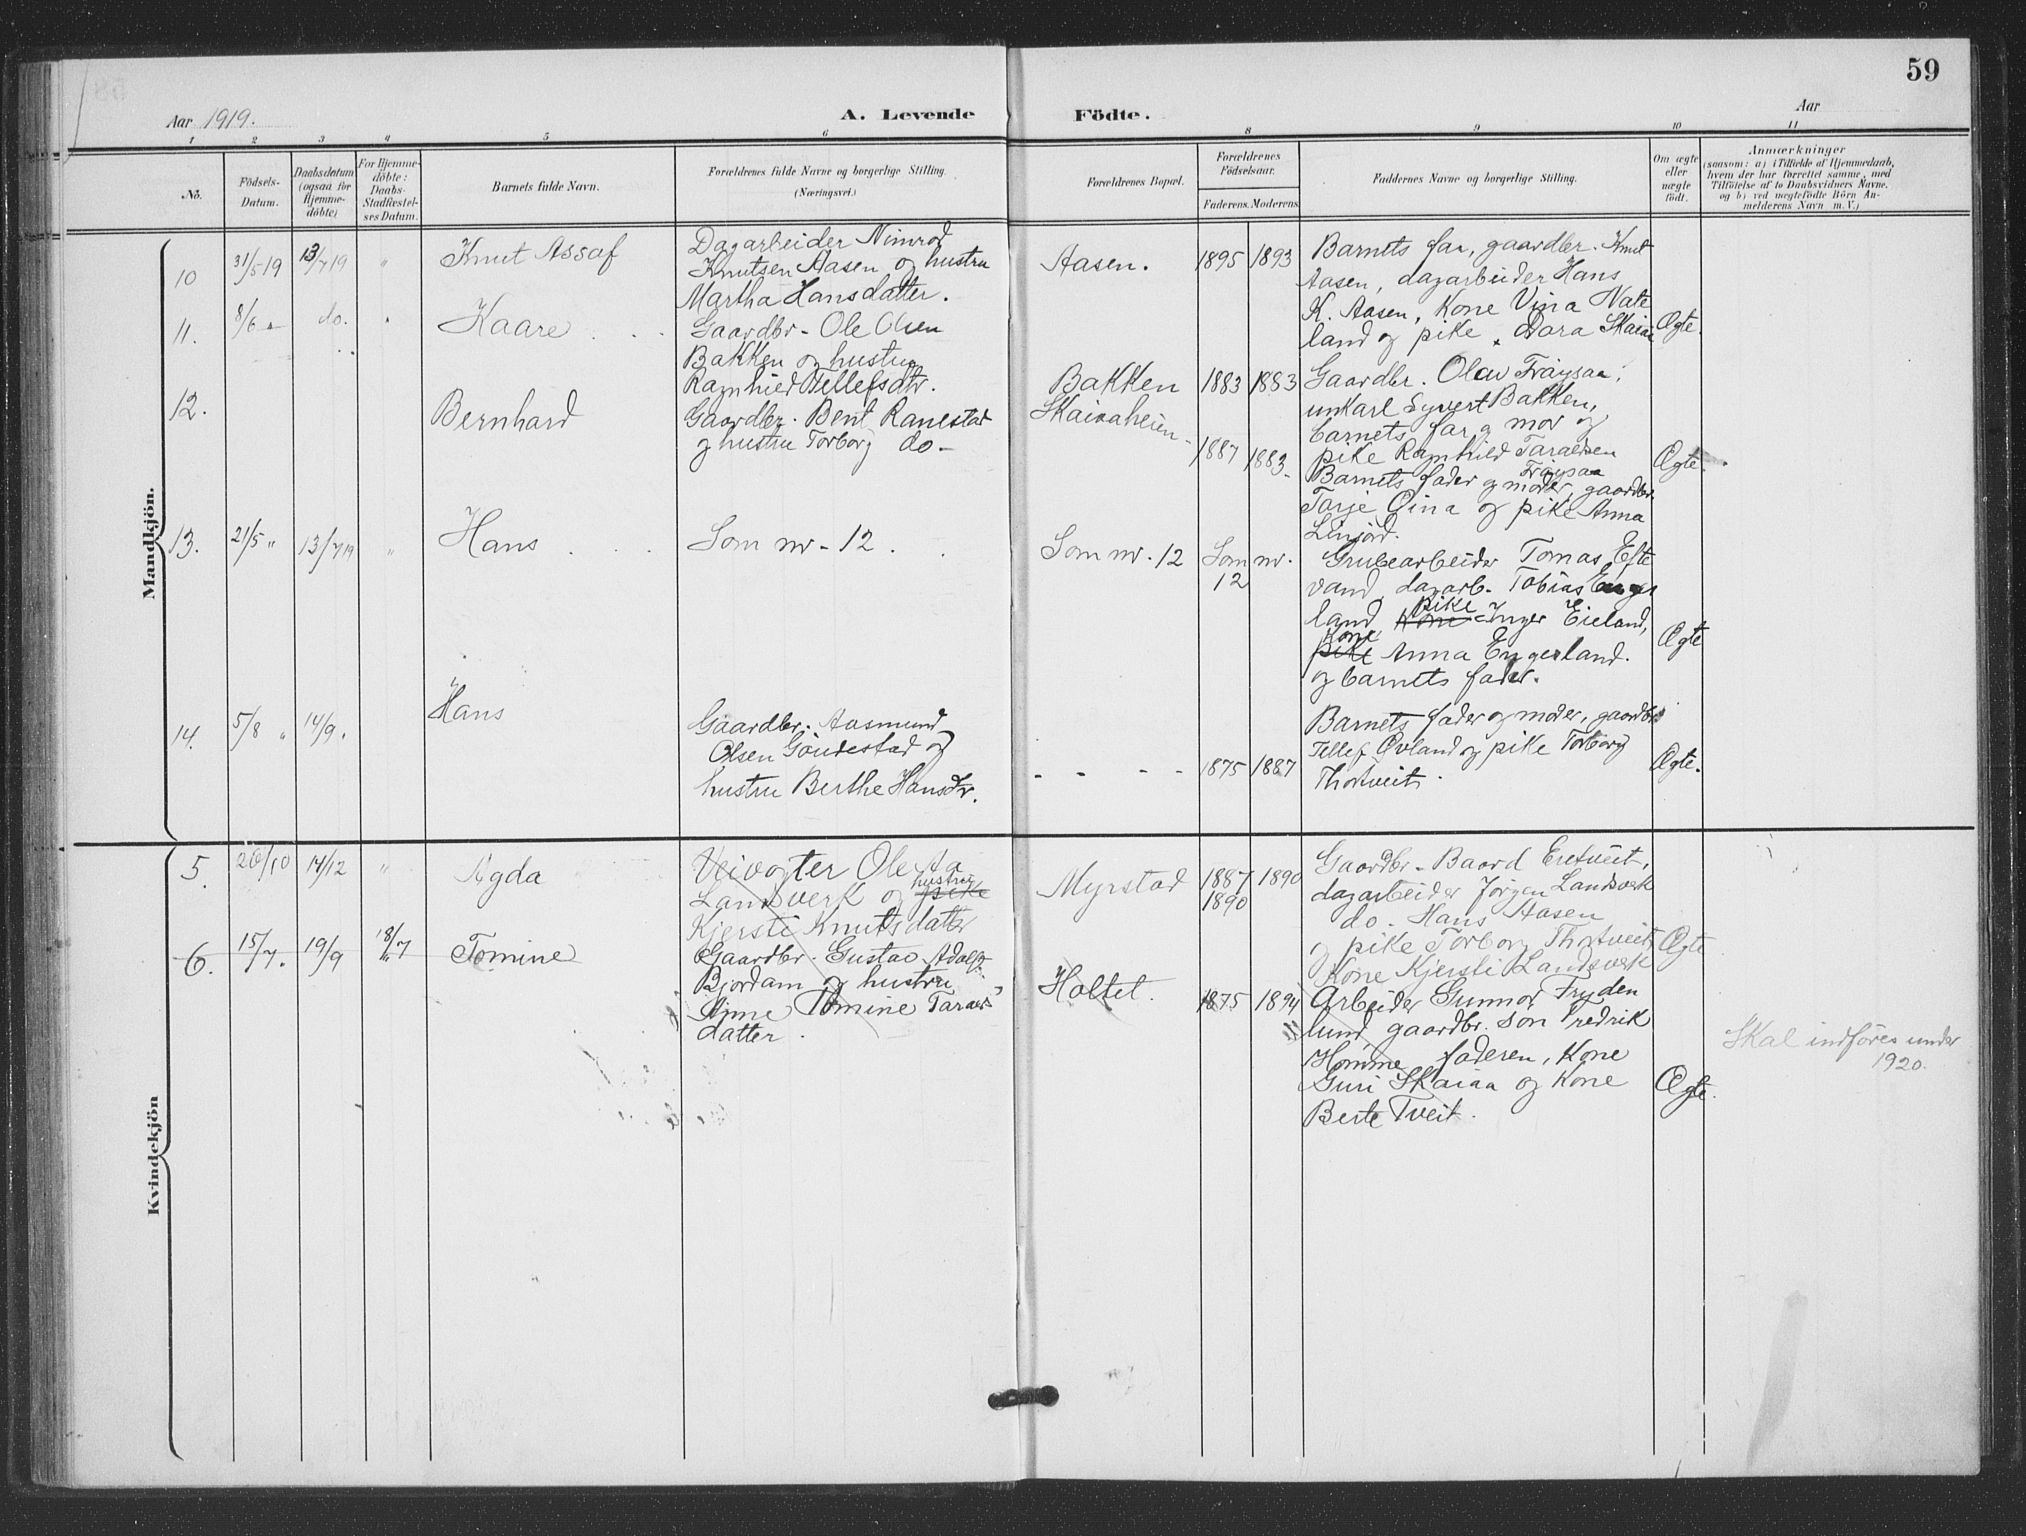 59
Aar 1919.
A. Levende
Födte.
Aar
1 2 3 4 5 6 8 9 10 11
No.
Födsels-
Datum.
Daabsdatum
(ogsaa for
Hjemme-
döbte)
For Hjemme-
döbte:
Daabs-
Stadfæstel-
ses Datum.
Barnets fulde Navn.
Forældrenes fulde Navne og borgerlige Stilling.
(Næringsvei.)
Forældrenes Bopæl.
Forældrenes
Födselsaar.
Faderens. Moderens.
Faddernes Navne og borgerlige Stilling.
Om ægte
eller
uægte
födt.
Anmærkninger
(saasom: a) i Tilfælde af Hjemmedaab,
hvem der har forrettet samme, med
Tilföielse af to Daabsvidners Navne,
og b) ved uægtefödte Börn An-
melderens Navn m. V.)
Mandkjön.
10 31/5 19 13/7 19 " Knut Assaf
Dagarbeider Nimrod
Knutsen Aasen og hustru
Martha Hansdatter.
Aasen. 1895 1893
Barnets far, gaardbr. Knut
Aasen, dagarbeider Hans
K. Aasen, Kone Vina Nate
land og pike Dora Skaiaa
Ægte.
11. 8/6 " do. " Kaare
Gaardbr. Ole Olsen
Bakken og hustru
Ragnhild Tellefsdtr.
Bakken 1883 1883
Gaardbr. Olav Fråysaa,
unkarl Syvert Bakken,
barnets far og mor og
pike Ragnhild Taraldsen
Ægte.
12. Bernhard
Gaardbr. Bent Ranestad
og hustru Torborg do -
Skaiaaheien - 1887 1883 -
Barnets fader og moder, Fråysaa gaardbr
Tarje Qina og pike Anna
13. 21/5 " 13/7 19 " Hans
Som nr - 12
Som nr. 12 Som nr.
12
Grubearbeider Tomas Efte
vand, dagarb. Tobias Enger
land, Kone pike Inger Eieland,
pike Kone Anna Engerland.
og barnets fader.
Ægte
14. 5/8 " 14/9. Hans
Gaardbr. Aasmund
Olsen Göudestad og
hustru Berthe Hansdtr.
- - - - 1875 1887
Barnets fader og moder, gaardbr
Tellef Øvland og pike Torborg
Thortveit.
Ægte.
Kvindekjön
5. 26/10 14/12 " Agda
Veivogter Ole Aa
Landsverk og pike hustru
Kjersti Knutsdatter
Myrstad 1887 1890
1890
Gaardbr. Baard Eretveit,
dagarbeider Jörgen Landsverk
do. Hans Aasen
og pike Torborg Thortveit
Kone Kjersti Landsverk
Ægte
6. 15/7. 19/9 18/7 " Tomine
Gaardbr. Gustav Adolf
Bjordam og hustru
Anne Tomine Taralds-
datter.
Holtet. 1875 1894
Arbeider Gunnar Fryden
lund, gaardbr. sön Fredrik
Homme, faderen, Kone
Guri Skaiaa og Kone
Berte Tveit.
Ægte.
Skal indföres under
1920.